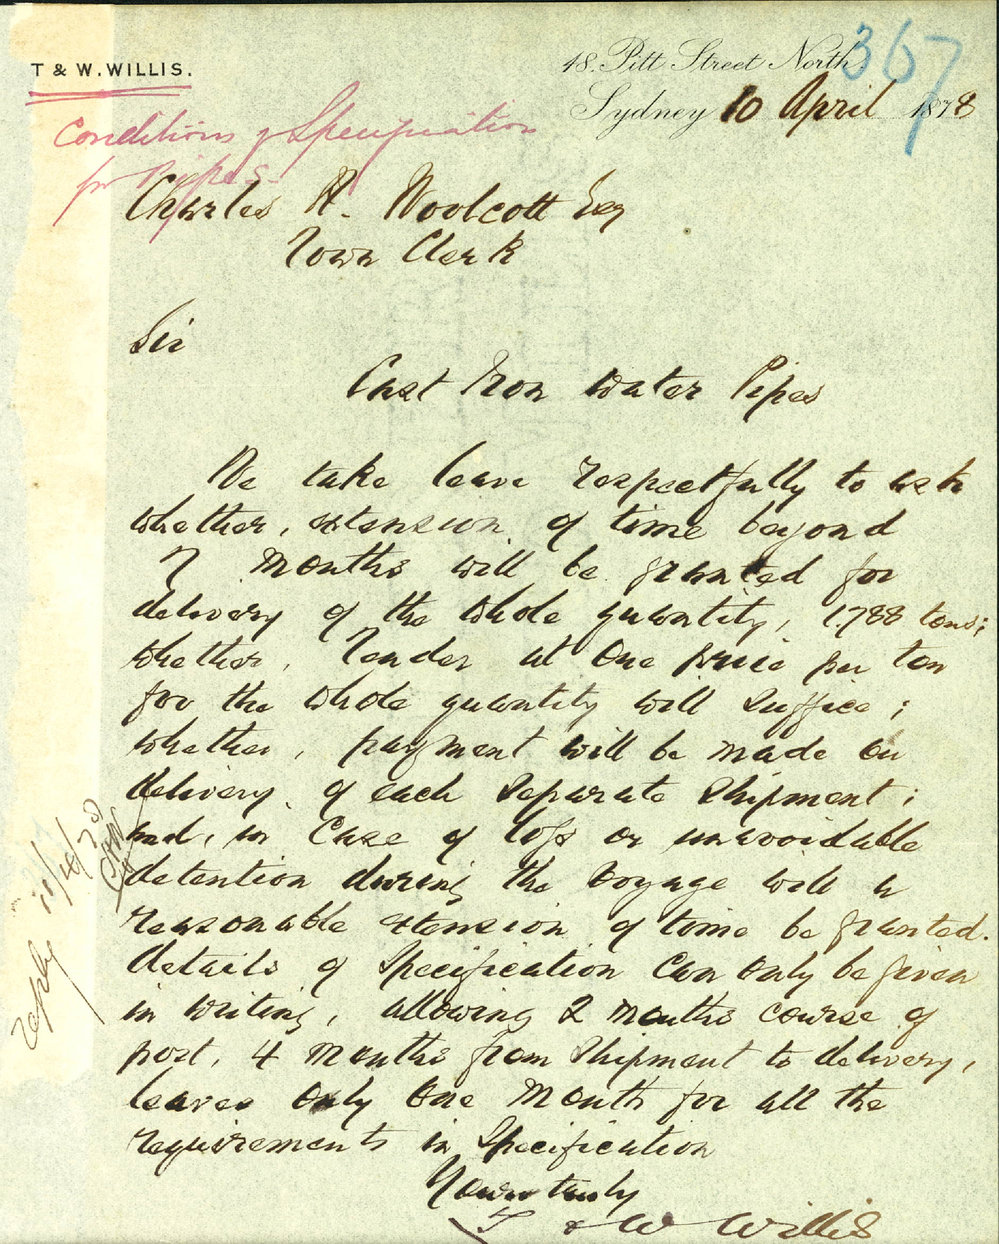 367
T & W. WILLIS.
48. Pitt Street North
Sydney 10 April 1878
Conditions & Specification
for Pipes
Charles H. Woolcott Esq
Town Clerk
Sir
Cast Iron Water Pipes
We take leave respectfully to ask
whether, extension of time beyond
7 months will be granted for
delivery of the whole quantity, 1788 tons;
whether, Tender at one price per ton
for the whole quantity will suffice;
whether, payment will be made on
delivery of each separate shipment;
and, in case of loss or unavoidable
detention during the voyage will a
reasonable extension of time be granted.
Details of Specification can only be given
in writing, allowing 2 months course of
post, 4 months from shipment to delivery,
leaves only one month for all the
requirements in Specification
Yours truly
T & W Willis
reply